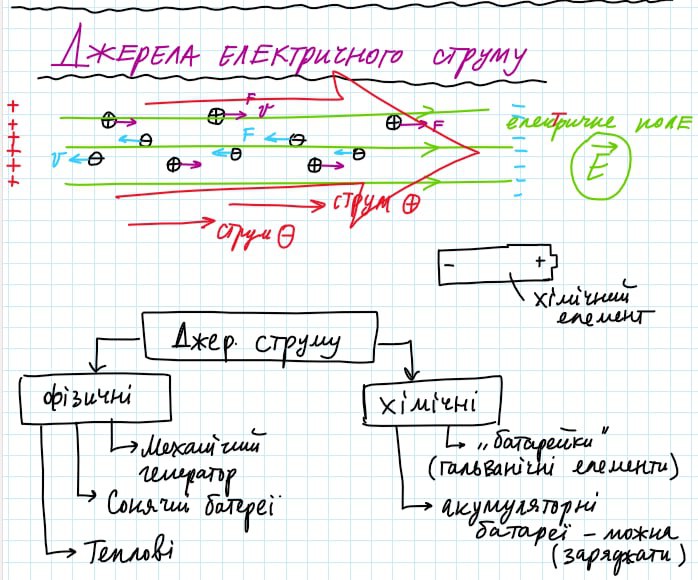 Джерела електричного струму
F
v
F
F
v
електричне поле
E
струм ⊕
струм ⊖
- +
хімічний
елемент
Джер. струму
фізичні
хімічні
Механічий
генератор
Сонячі батереї
Теплові
„батарейки"
(гальванічні елементи)
акумуляторні
батареї – можна
(заряджати)